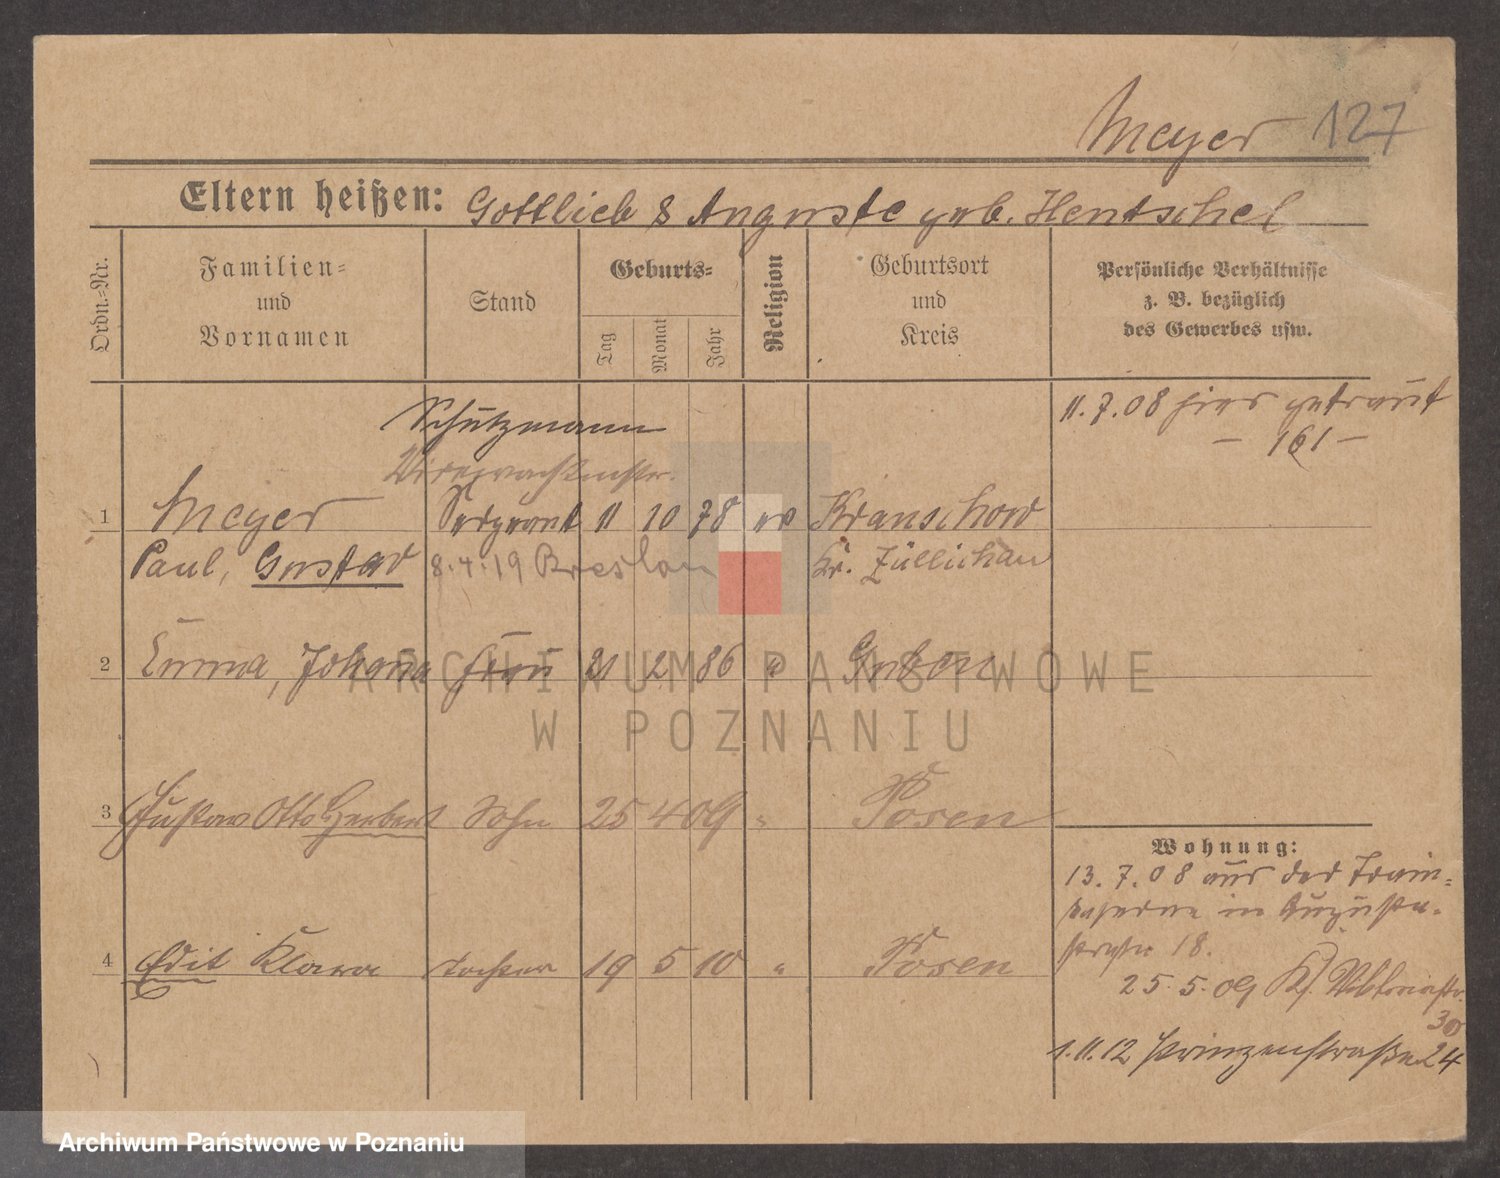 Meyer 127
Eltern heißen: Gottlieb & Auguste geb. Hentschel
Ordn.=Nr.
Familien=
und
Vornamen
Stand
Geburts=
Tag
Monat
Jahr
Religion
Geburtsort
und
Kreis
Persönliche Verhältnisse
z. B. bezüglich
des Gewerbes usw.
11.7.08 hier getraut
— 161 —
Schutzmann
Vizewachtmstr.
1 Meyer Sergeant 11 10 78 ev Kranschow
Paul, Gustav 8.4.19 Breslau Kr. Züllichau
2 Emma, Johanna Frau 21 2 86 " Guben
3 Gustav Otto Herbert Sohn 25 4 09 " Posen
4 Edit Klara Tochter 19 5 10 " Posen
Wohnung:
13.7.08 aus der Train=
kaserne in Augusta-
straße 18.
25.5.09 Kl. Viktoriastr.
30
1.11.12 Prinzenstraße 24
ARCHIWUM PAŃSTWOWE
W POZNANIU
Archiwum Państwowe w Poznaniu